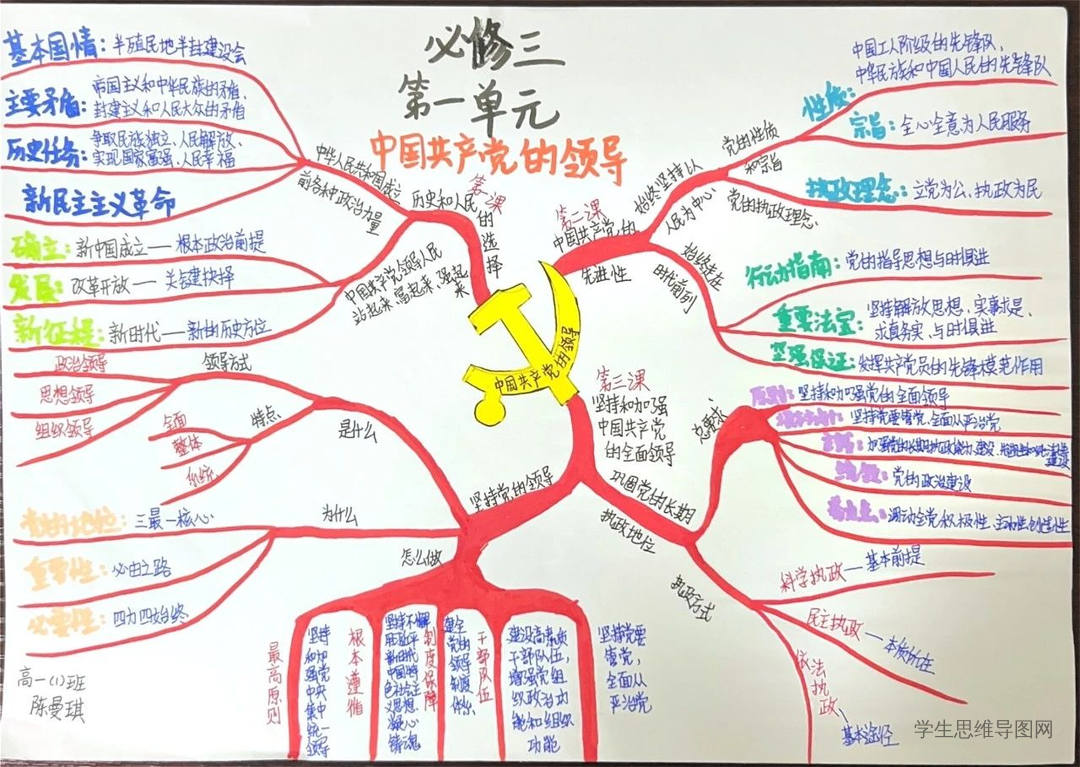 必修三
第一单元
中国共产党的领导
中国共产党的领导
第一课
历史和人民
的选择
中华人民共和国成立
前各种政治力量
基本国情：半殖民地半封建社会
主要矛盾：帝国主义和中华民族的矛盾、
封建主义和人民大众的矛盾
历史任务：争取民族独立、人民解放、
实现国家富强、人民幸福
新民主主义革命
中国共产党领导人民
站起来、富起来、强起来
确立：新中国成立——根本政治前提
发展：改革开放——关键抉择
新征程：新时代——新的历史方位
第二课
中国共产党的
先进性
始终坚持以
人民为中心
党的性质
和宗旨
性质：中国工人阶级的先锋队、
中华民族和中国人民的先锋队
宗旨：全心全意为人民服务
党的执政理念
执政理念：立党为公、执政为民
始终走在
时代前列
行动指南：党的指导思想与时俱进
重要法宝：坚持解放思想、实事求是、
求真务实、与时俱进
坚强保证：发挥共产党员的先锋模范作用
第三课
坚持和加强
中国共产党
的全面领导
坚持党的领导
是什么
领导方式
政治领导
思想领导
组织领导
特点
全面
整体
系统
为什么
党的地位：三最一核心
重要性：必由之路
必要性：四力四始终
怎么做
最高原则
坚持和加强党中央集中统一领导
根本遵循
坚持不懈用习近平新时代中国特色社会主义思想凝心铸魂
制度保障
健全党的领导制度体系
干部队伍
建设高素质
干部队伍，
增强党组
织政治功
能和组织
功能
坚持党要
管党，
全面从
严治党
巩固党的长期
执政地位
总要求
原则：坚持和加强党的全面领导
坚持党要管党、全面从严治党
党的政治建设
调动全党积极性、主动性、创造性
执政方式
科学执政——基本前提
民主执政——本质所在
依法执政——基本途径
高一(1)班
陈曼琪
学生思维导图网